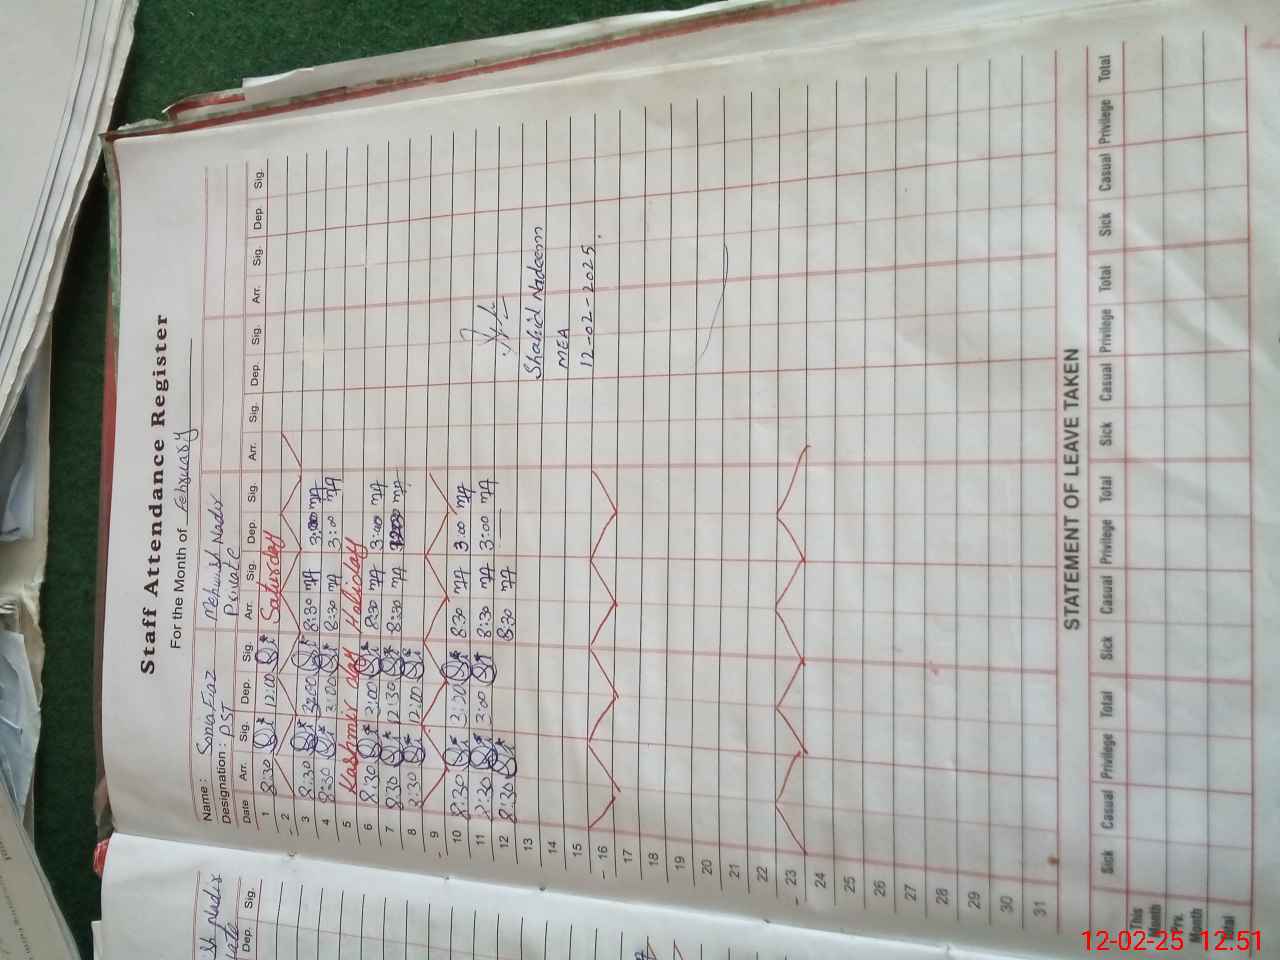 Staff Attendance Register
For the Month of February
Name: Sonia Fiaz Mehwish Nadir
Designation: PST Private
Date Arr. Sig. Dep. Sig. Arr. Sig. Dep. Sig. Arr. Sig. Dep. Sig. Arr. Sig. Dep. Sig.
1 8:30 12:00 Saturday
2
3 8:30 3:00 8:30 MA 3:00 MA
4 8:30 2:00 8:30 MA 3:00 MA
5 Kashmir day Holiday
6 8:30 2:00 8:30 MA 3:00 MA
7 8:30 12:30 8:30 MA MA
8 8:30 12:00
9
10 8:30 2:20 8:30 MA 3:00 MA
11 8:30 2:00 8:30 MA 3:00 MA
12 8:30 8:30 MA
13 Shahid Nadeem
14 MEA
15 12-02-2025
16
17
18
19
20
21
22
23
24
25
26
27
28
29
30
31
STATEMENT OF LEAVE TAKEN
Sick Casual Privilege Total Sick Casual Privilege Total Sick Casual Privilege Total Sick Casual Privilege Total
This Month
Prv. Month
Total
Sh Nadir
vate
Dep. Sig.
12-02-25 12:51